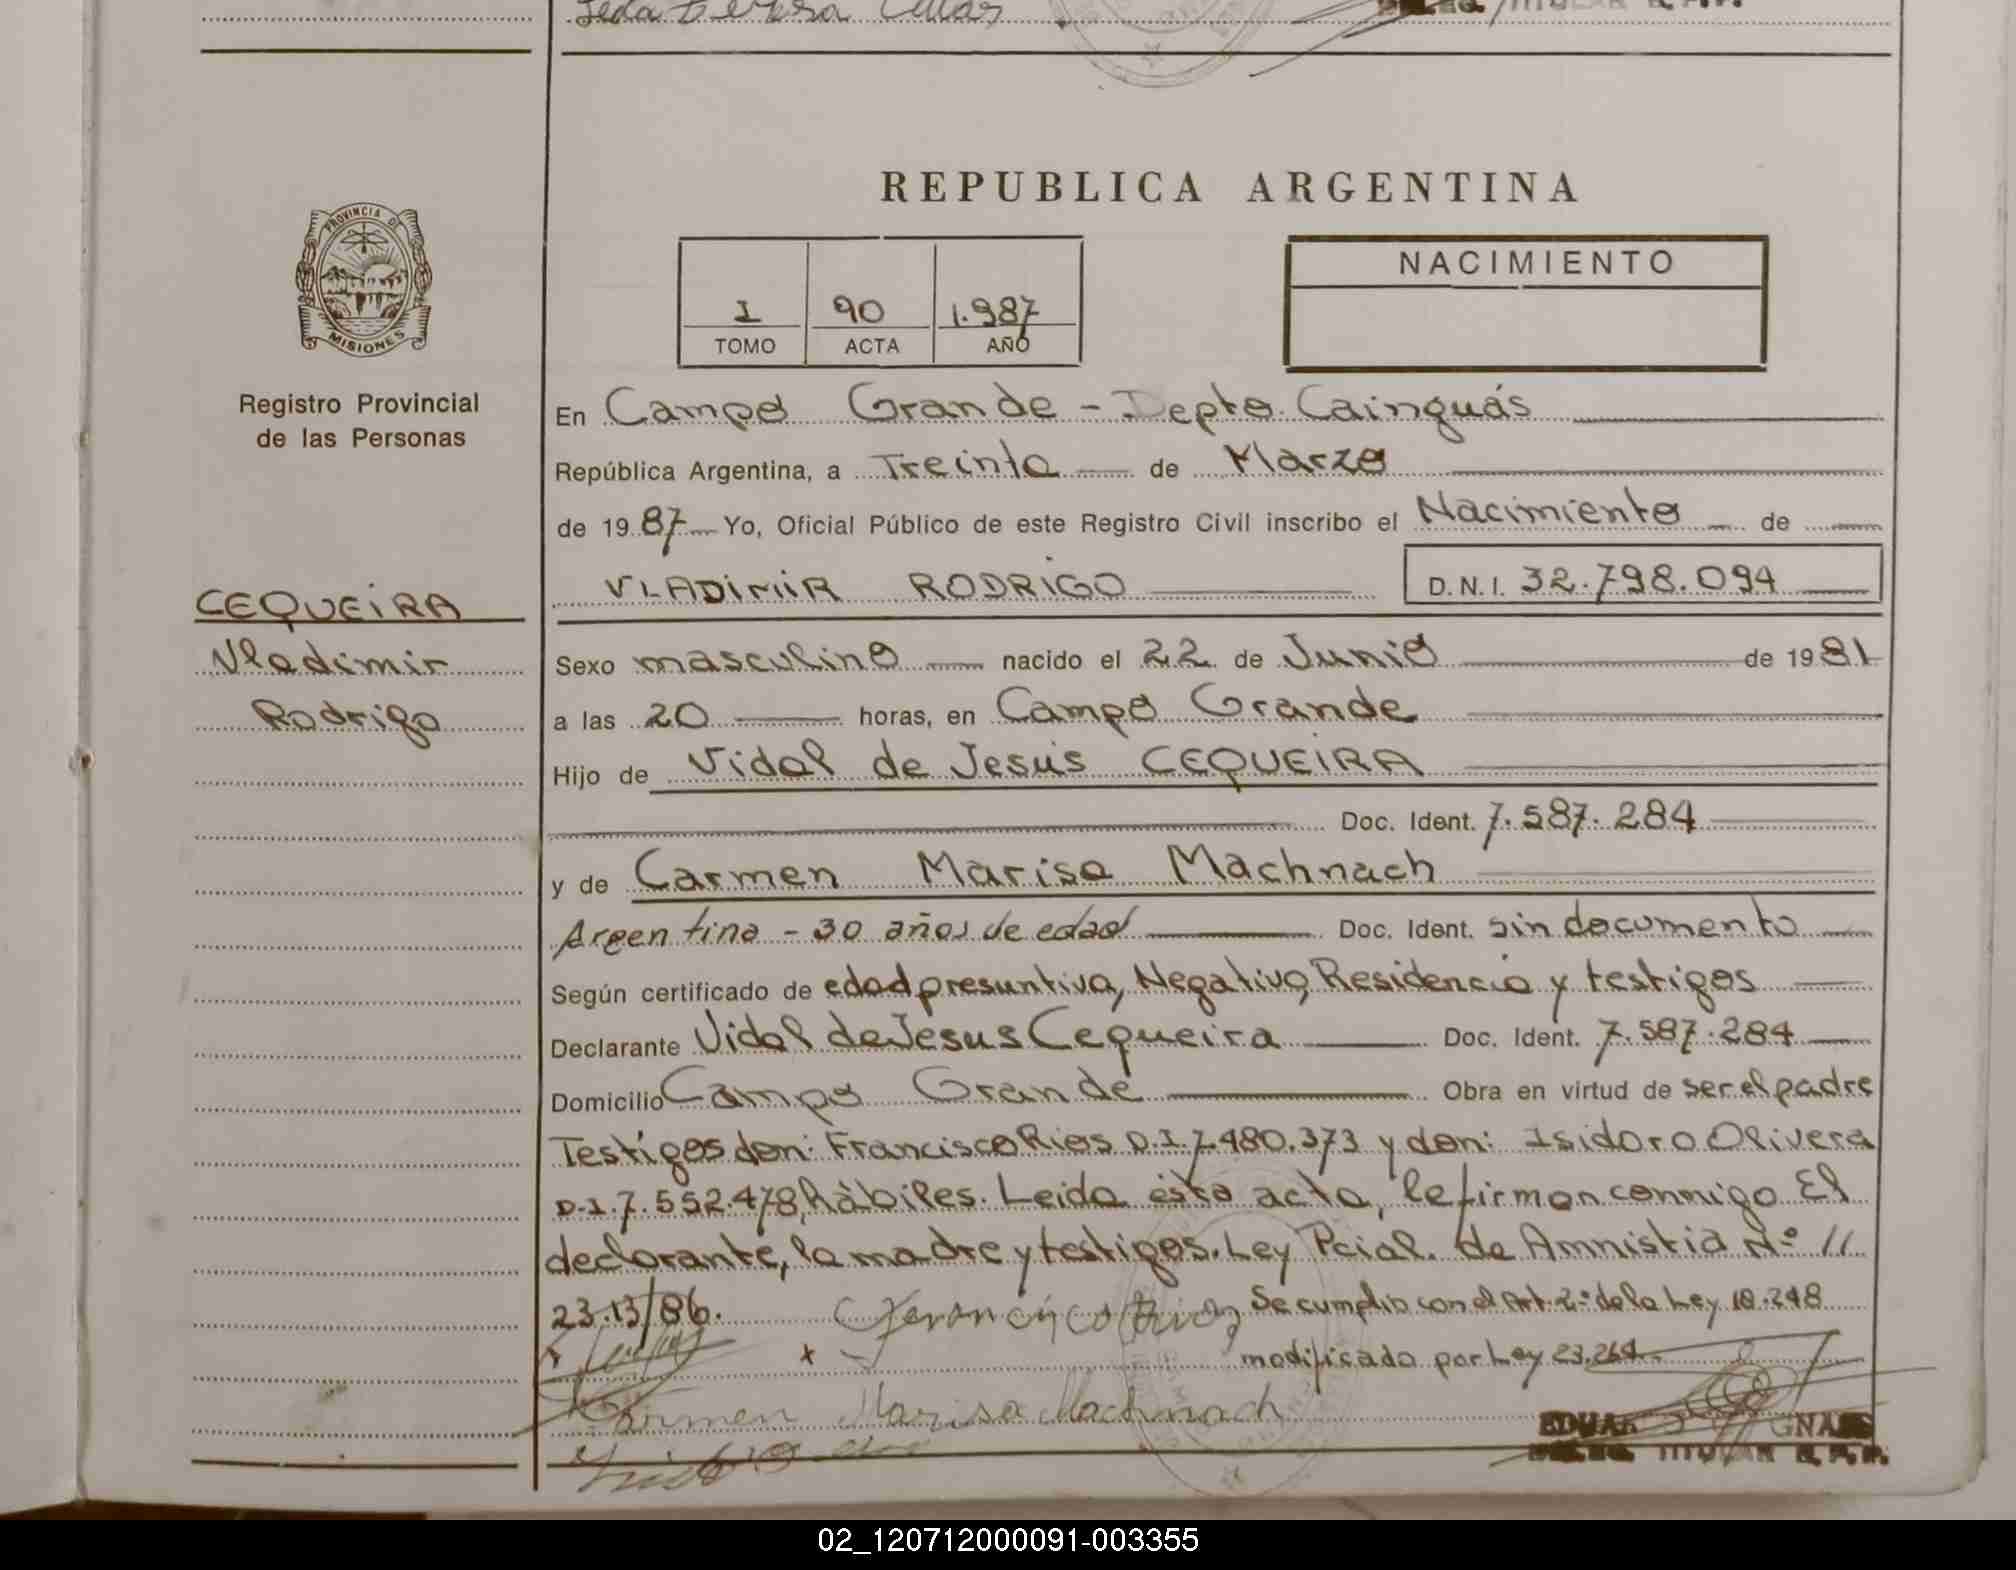 REPUBLICA ARGENTINA
PROVINCIA DE
MISIONES
Registro Provincial
de las Personas
CEQUEIRA
Vladimir
Rodrigo
I 90 1.987
TOMO ACTA AÑO
NACIMIENTO
En Campo Grande - Depto. Cainguás
República Argentina, a Treinta de Marzo
de 1987 Yo, Oficial Público de este Registro Civil inscribo el Nacimiento de
VLADIMIR RODRIGO D.N.I. 32.798.094
Sexo masculino nacido el 22 de Junio de 1981
a las 20 horas, en Campo Grande
Hijo de Vidal de Jesús CEQUEIRA
Doc. Ident. 7.587.284
y de Carmen Marisa Machnach
Argentina - 30 años de edad Doc. Ident. sin documento
Según certificado de edad presuntiva, Negativo, Residencia y testigos
Declarante Vidal de Jesus Cequeira Doc. Ident. 7.587.284
Domicilio Campo Grande Obra en virtud de ser el padre
Testigos don: Francisco Rios D.I. 7.480.373 y don: Isidoro Olivera
D.I. 7.552.478, hàbiles. Leida ésta acta, le firman conmigo El
declarante, la madre y testigos. Ley Pcial. de Amnistia Nº 11
23.13/86. Se cumplio con el Art. 2º de la Ley 18.248
modificado por Ley 23.264
Carmen Marisa Machnach
TITULAR R.P.P.
02_120712000091-003355